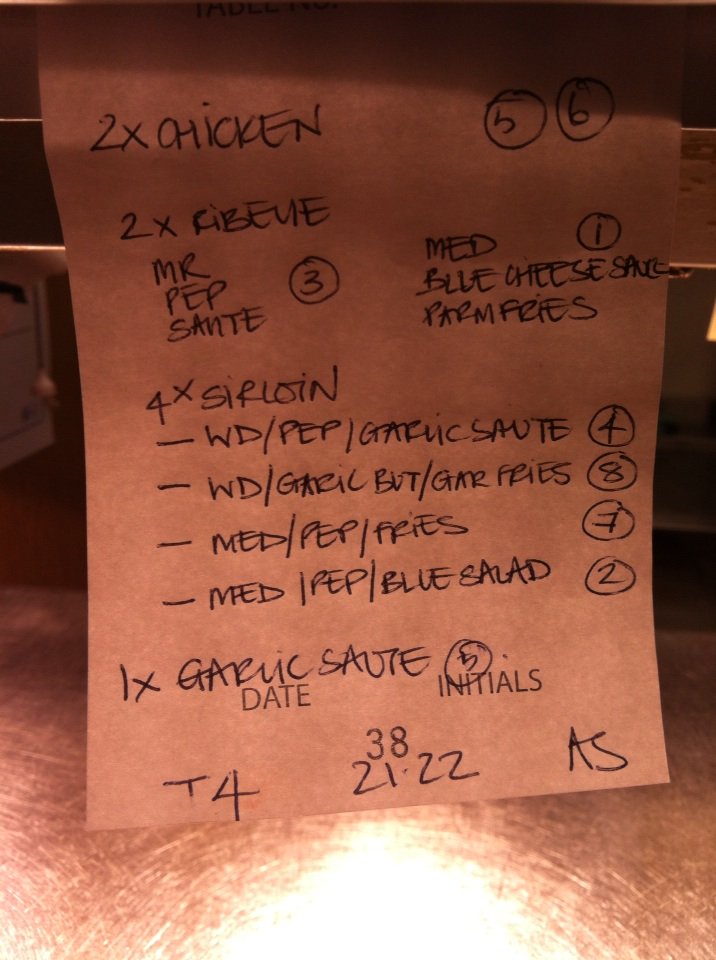 TABLE NO.
2X CHICKEN 5 6
2X RIBEYE
MR 3
PEP
SAUTE
MED 1
BLUE CHEESE SAUCE
PARM FRIES
4X SIRLOIN
— WD/PEP/GARLIC SAUTE 4
— WD/GARIC BUT/GAR FRIES 8
— MED/PEP/FRIES 7
— MED/PEP/BLUE SALAD 2
1X GARLIC SAUTE 5.
DATE INITIALS
38
T4 21.22 AS